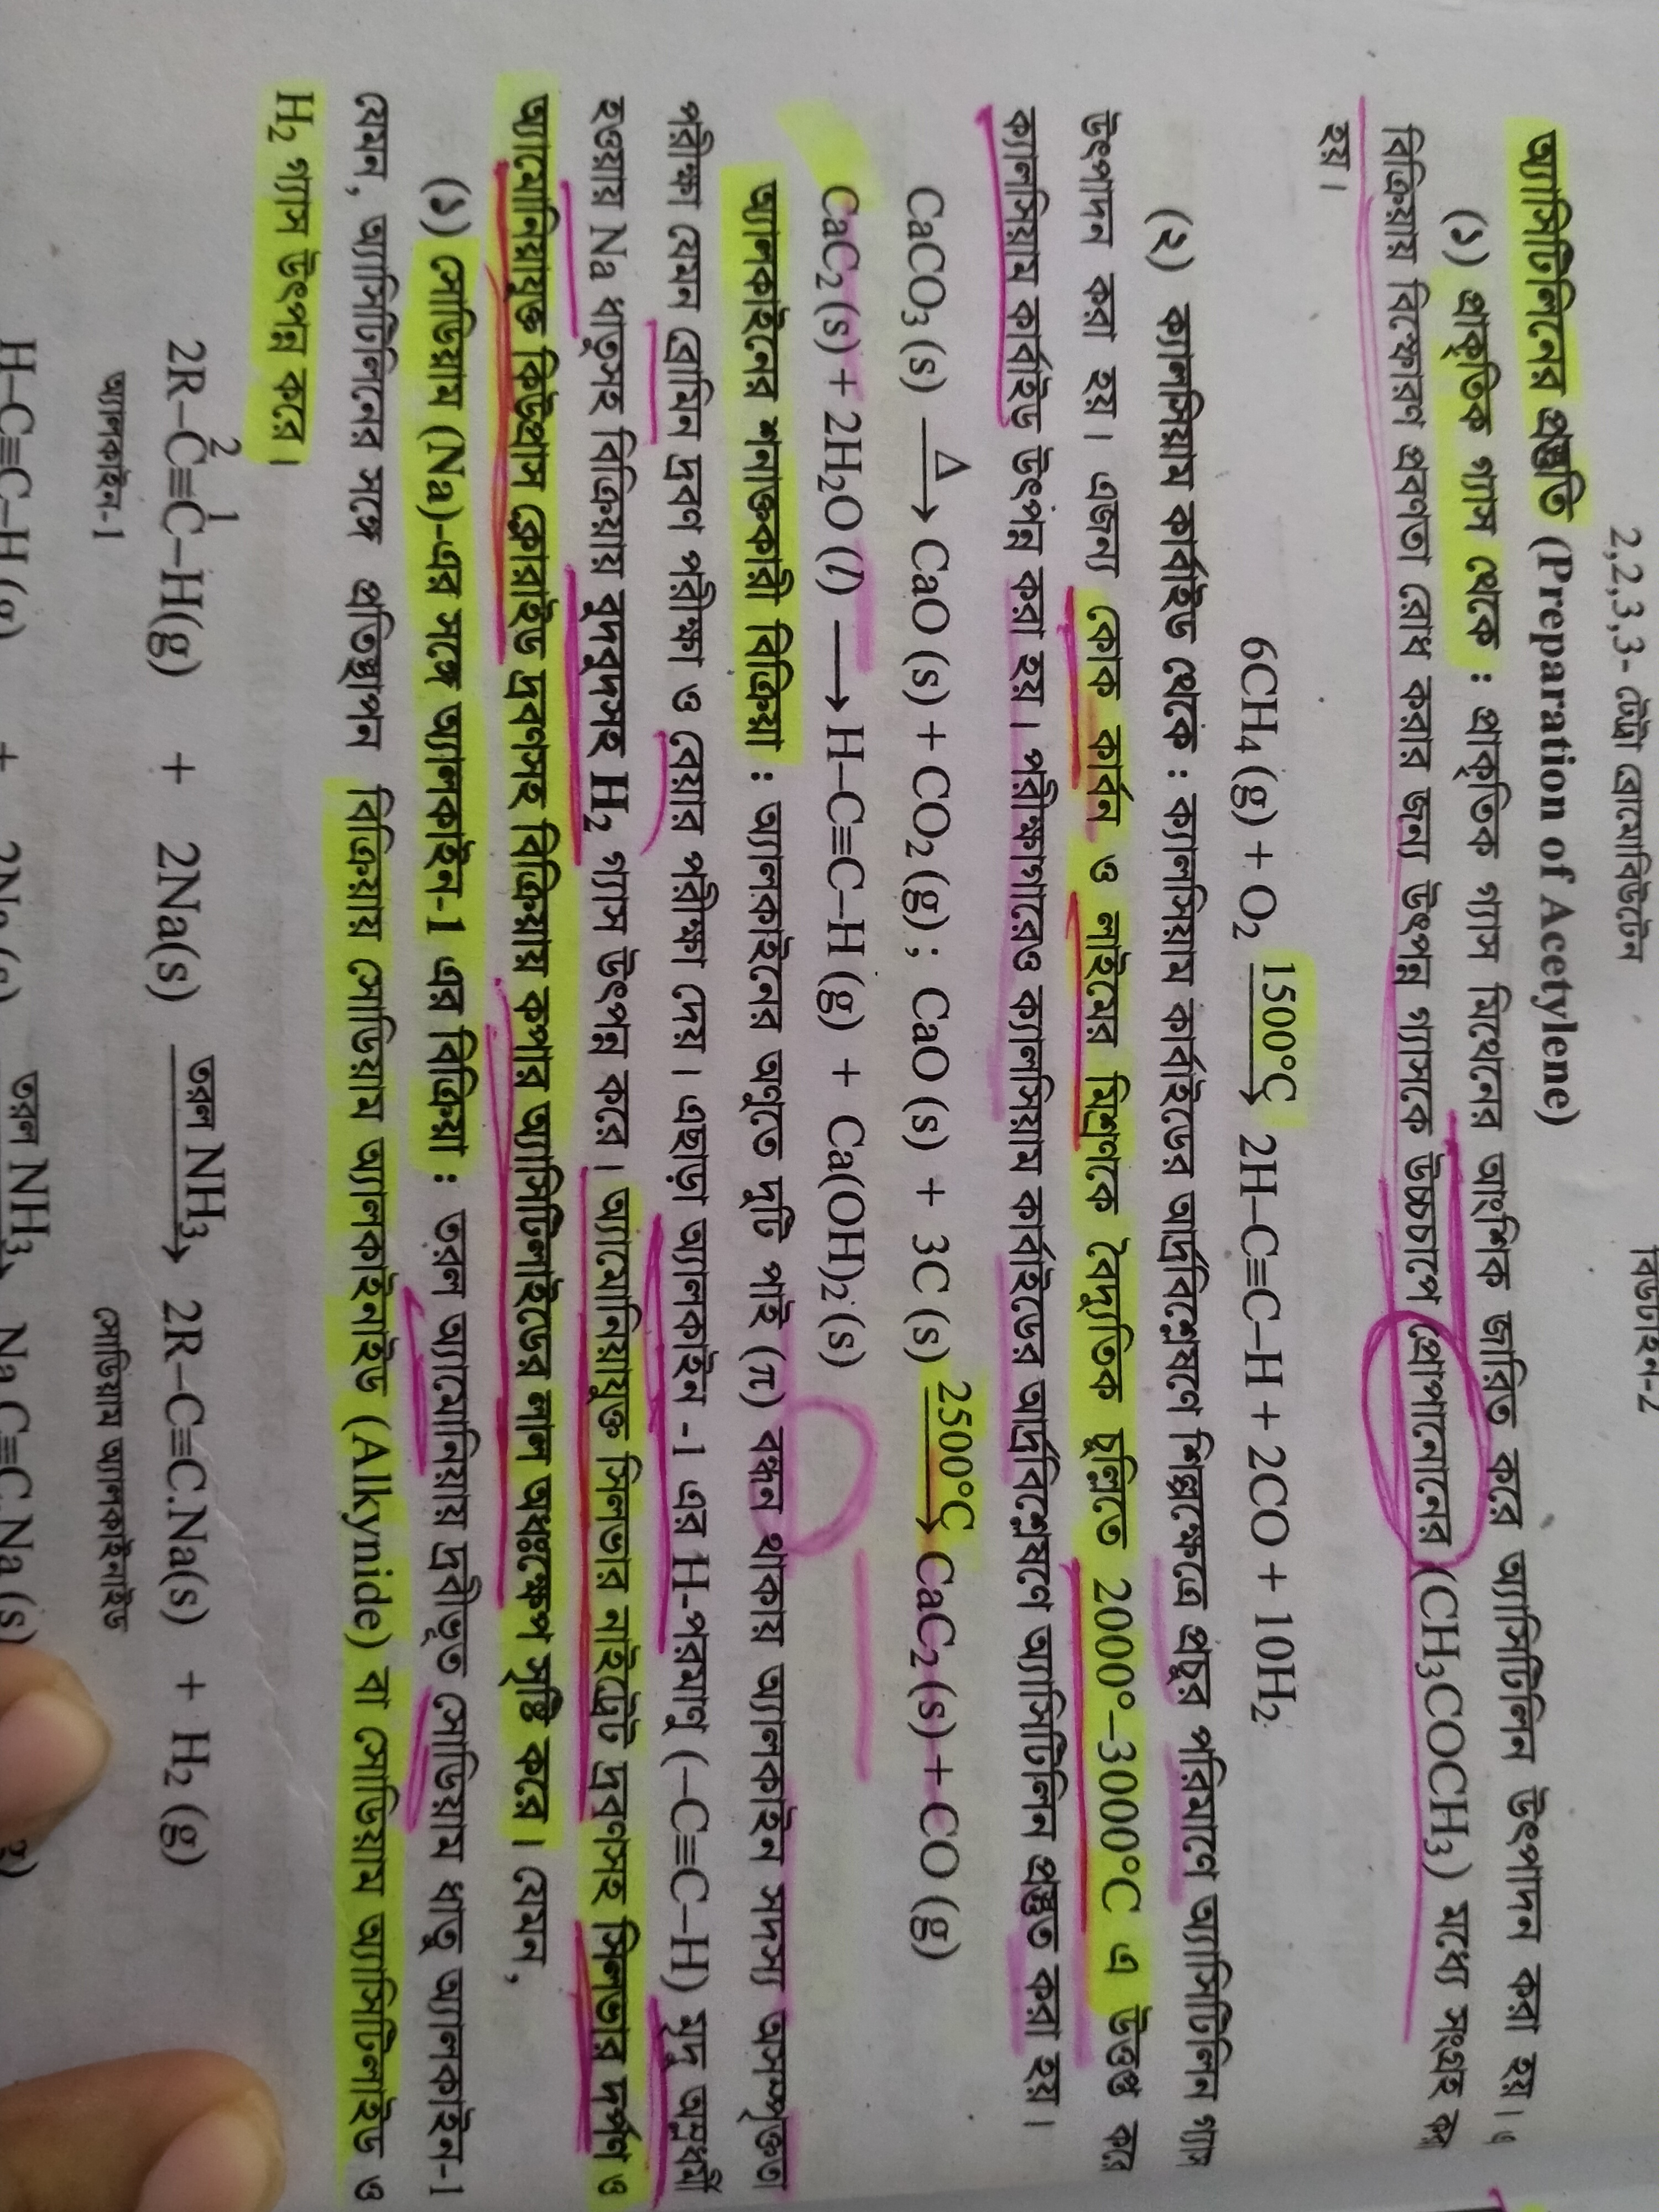 2,2,3,3- টেট্রা ব্রোমোবিউটেন
বিউটাইন-2
অ্যাসিটিলিনের প্রস্তুতি (Preparation of Acetylene)
(১) প্রাকৃতিক গ্যাস থেকে : প্রাকৃতিক গ্যাস মিথেনের আংশিক জারিত করে অ্যাসিটিলিন উৎপাদন করা হয়।
বিক্রিয়ায় বিস্ফোরণ প্রবণতা রোধ করার জন্য উৎপন্ন গ্যাসকে উচ্চচাপে প্রোপানোনের (CH3COCH3) মধ্যে সংগ্রহ করা
হয়।
6CH₄ (g) + O₂ 1500°C→ 2H–C≡C–H + 2CO + 10H₂
(২) ক্যালসিয়াম কার্বাইড থেকে : ক্যালসিয়াম কার্বাইডের আর্দ্রবিশ্লেষণে শিল্পক্ষেত্রে প্রচুর পরিমাণে অ্যাসিটিলিন গ্যাস
উৎপাদন করা হয়। এজন্য কোক কার্বন ও লাইমের মিশ্রণকে বৈদ্যুতিক চুল্লিতে 2000°–3000°C এ উত্তপ্ত করে
ক্যালসিয়াম কার্বাইড উৎপন্ন করা হয়। পরীক্ষাগারেও ক্যালসিয়াম কার্বাইডের আর্দ্রবিশ্লেষণে অ্যাসিটিলিন প্রস্তুত করা হয়।
CaCO₃ (s) Δ→ CaO (s) + CO₂ (g) ; CaO (s) + 3C (s) 2500°C→ CaC₂ (s) + CO (g)
CaC₂ (s) + 2H₂O (l) ⟶ H–C≡C–H (g) + Ca(OH)₂ (s)
অ্যালকাইনের শনাক্তকারী বিক্রিয়া : অ্যালকাইনের অণুতে দুটি পাই (π) বন্ধন থাকায় অ্যালকাইন সদস্য অসম্পৃক্ততা
পরীক্ষা যেমন ব্রোমিন দ্রবণ পরীক্ষা ও বেয়ার পরীক্ষা দেয়। এছাড়া অ্যালকাইন -1 এর H-পরমাণু (–C≡C–H) মৃদু অম্লধর্মী
হওয়ায় Na ধাতুসহ বিক্রিয়ায় বুদবুদসহ H₂ গ্যাস উৎপন্ন করে। অ্যামোনিয়াযুক্ত সিলভার নাইট্রেট দ্রবণসহ সিলভার দর্পণ ও
অ্যামোনিয়াযুক্ত কিউপ্রাস ক্লোরাইড দ্রবণসহ বিক্রিয়ায় কপার অ্যাসিটিলাইডের লাল অধঃক্ষেপ সৃষ্টি করে। যেমন,
(১) সোডিয়াম (Na)-এর সঙ্গে অ্যালকাইন-1 এর বিক্রিয়া : তরল অ্যামোনিয়ায় দ্রবীভূত সোডিয়াম ধাতু অ্যালকাইন-1
যেমন, অ্যাসিটিলিনের সঙ্গে প্রতিস্থাপন বিক্রিয়ায় সোডিয়াম অ্যালকাইনাইড (Alkynide) বা সোডিয়াম অ্যাসিটিলাইড ও
H₂ গ্যাস উৎপন্ন করে।
2R–C²≡C¹–H(g) + 2Na(s) তরল NH₃→ 2R–C≡C.Na(s) + H₂ (g)
অ্যালকাইন-1 সোডিয়াম অ্যালকাইনাইড
H–C≡C–H (g) + 2Na (s) তরল NH₃→ Na C≡C.Na (s)